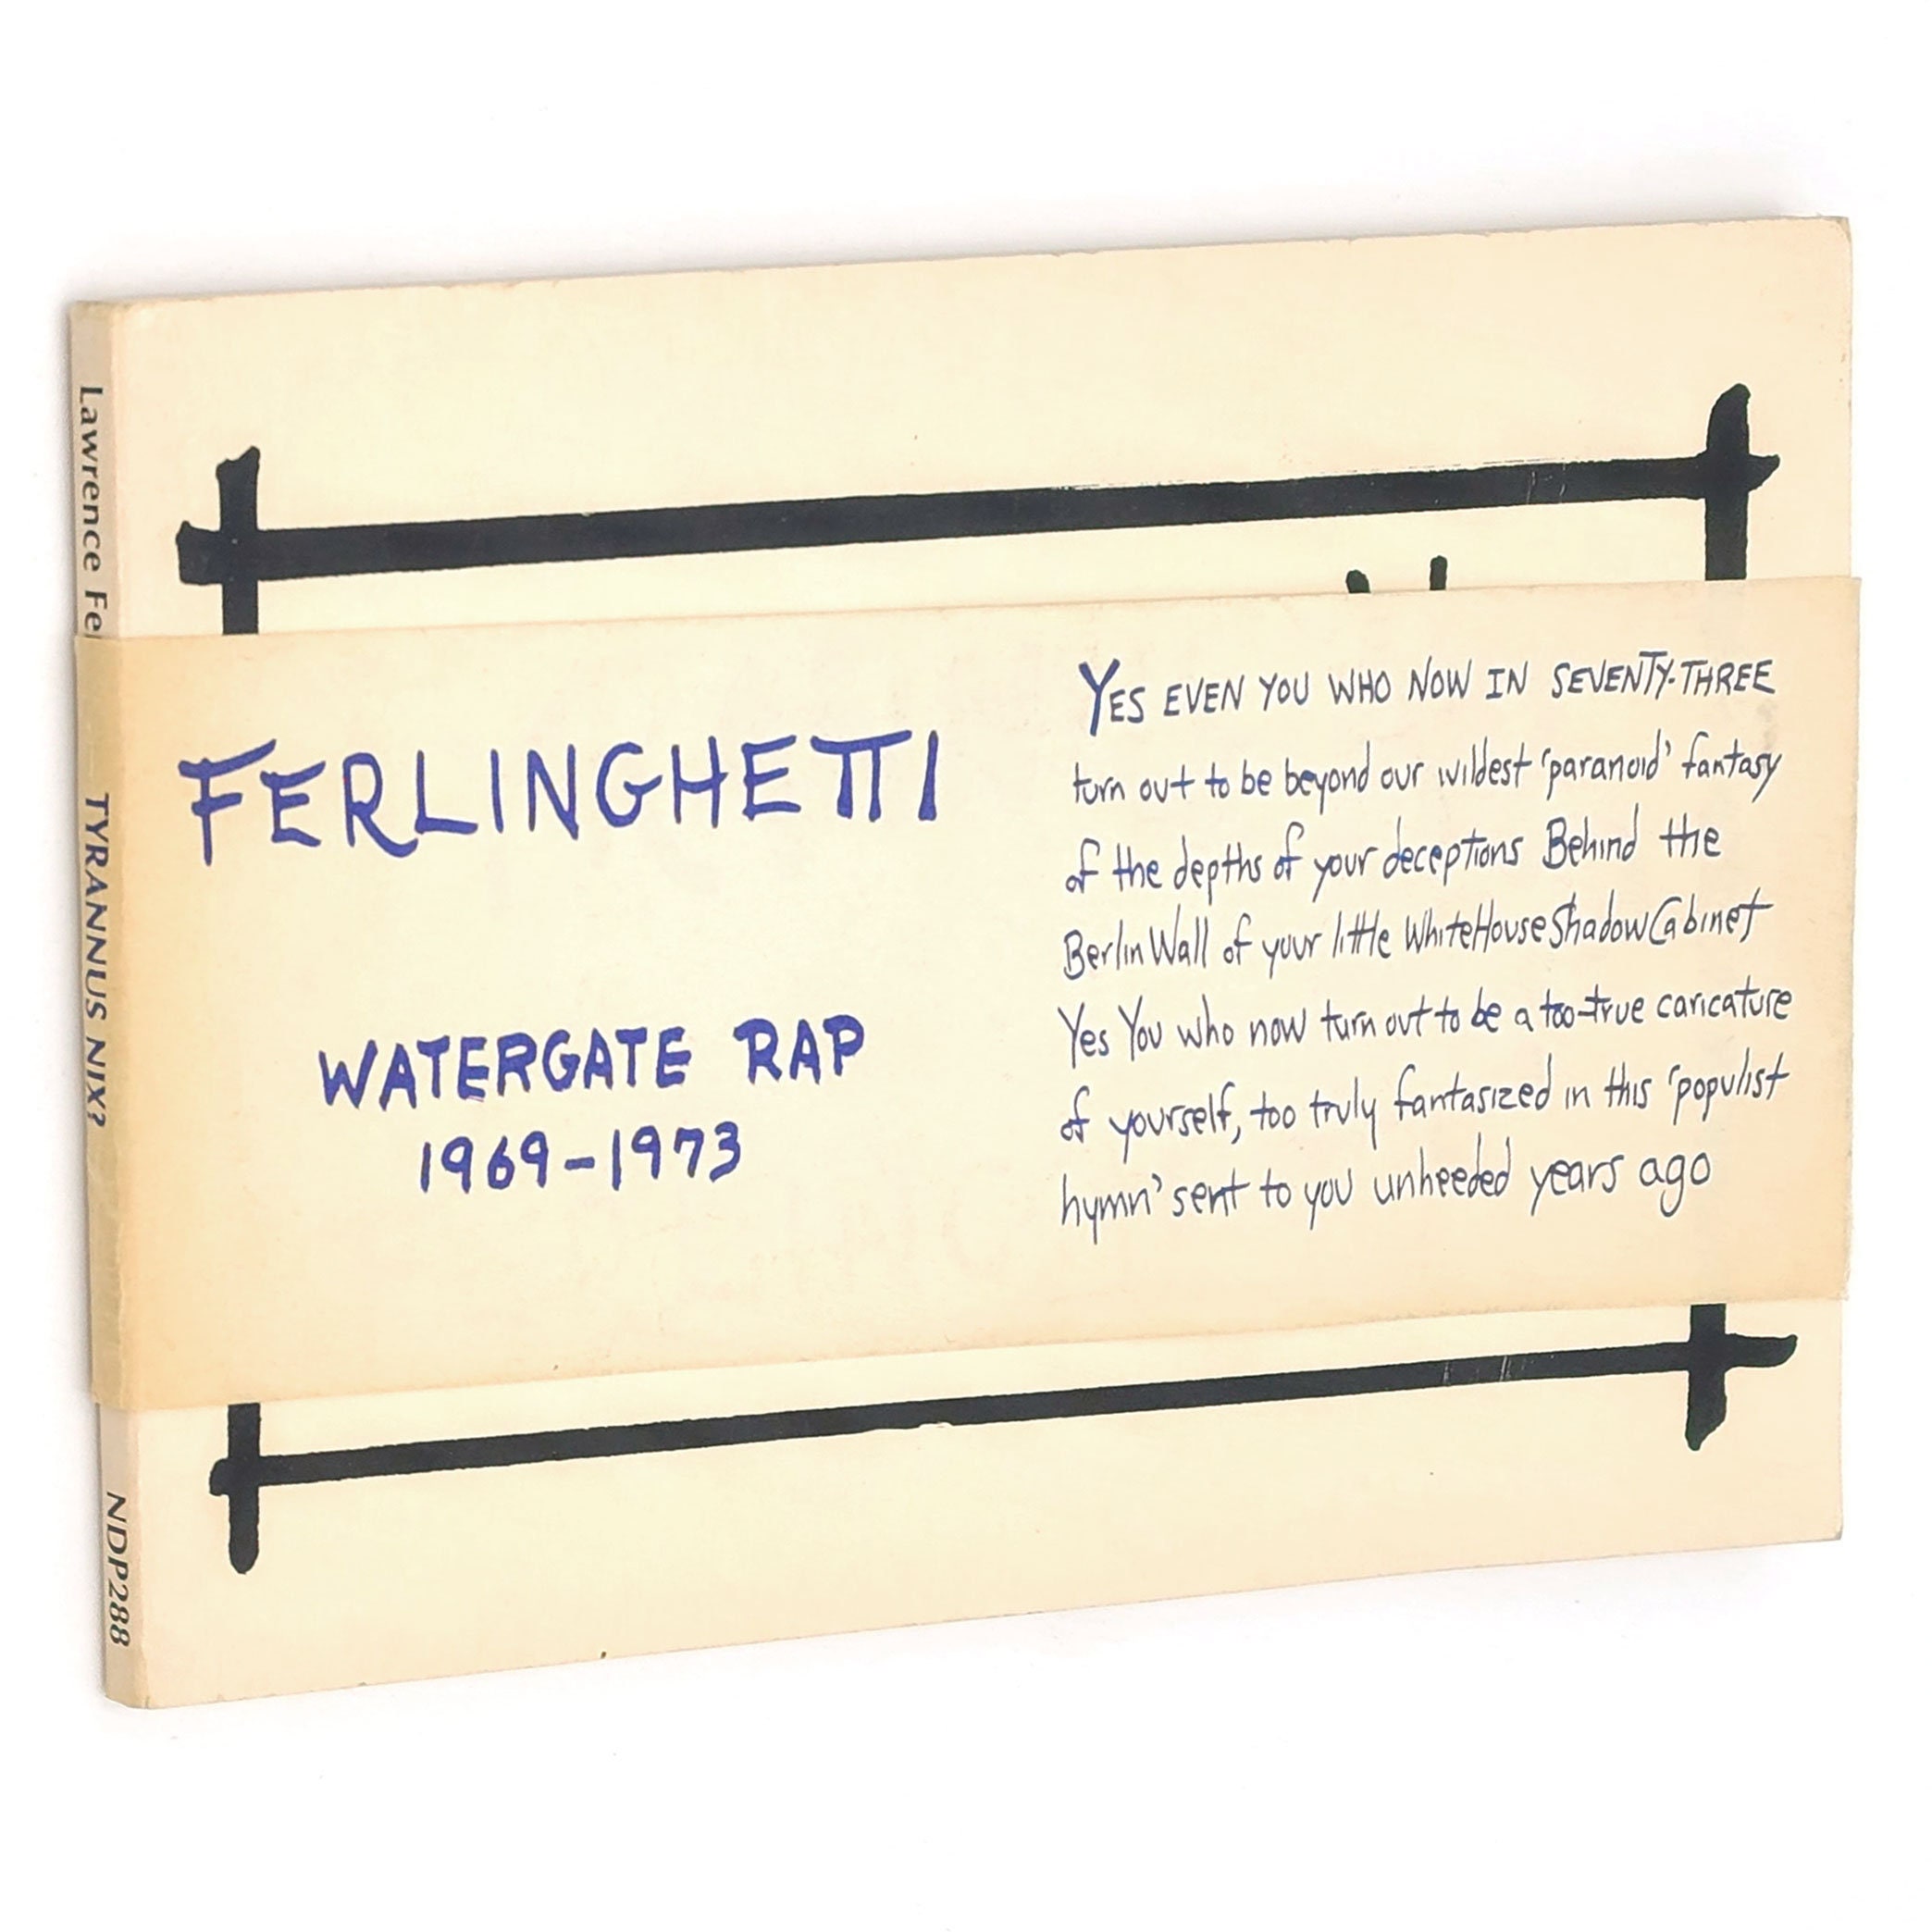 Lawrence Fe
TYRANNUS NIX?
NDP288
FERLINGHETTI
WATERGATE RAP
1969-1973
YES EVEN YOU WHO NOW IN SEVENTY-THREE
turn out to be beyond our wildest 'paranoid' fantasy
of the depths of your deceptions Behind the
Berlin Wall of your little WhiteHouseShadowCabinet
Yes You who now turn out to be a too-true caricature
of yourself, too truly fantasized in this 'populist
hymn' sent to you unheeded years ago